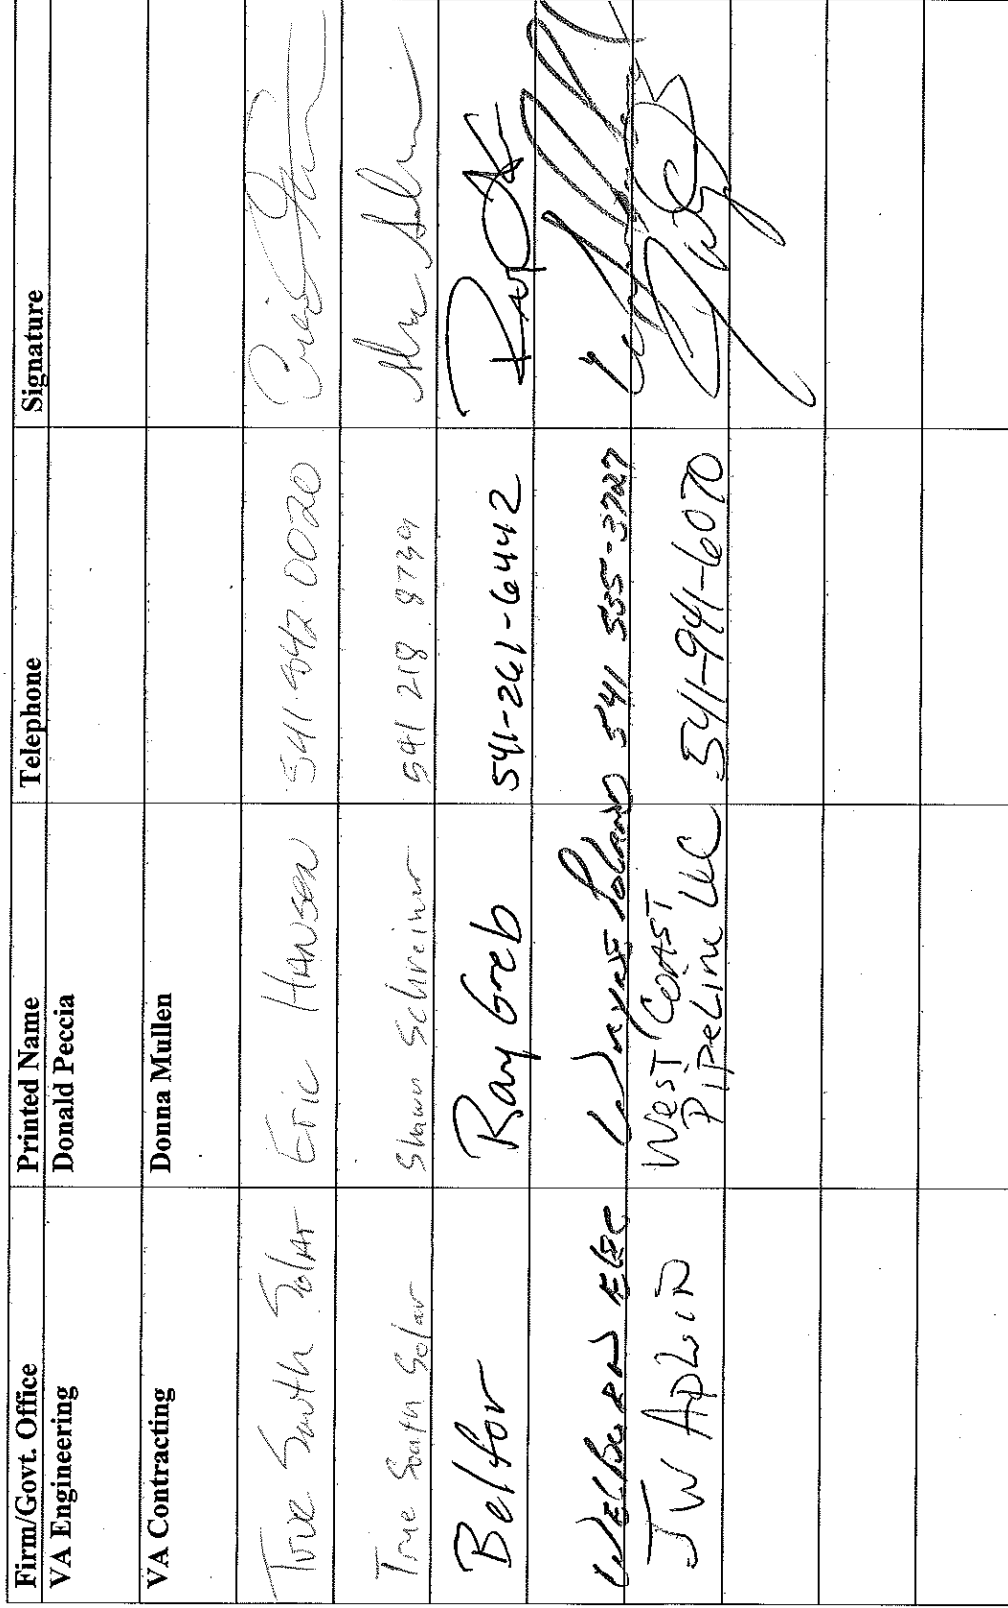 Firm/Govt. Office Printed Name Telephone Signature
VA Engineering Donald Peccia
VA Contracting Donna Mullen
True South Solar Eric Hansen 541.842.0020
True South Solar Shawn Schreiner 541 218 8739
Belfor Ray Greb 541-261-6442
Welburn Elec Wayne Poland 541 535-3727
JW Aplin West Coast 541-941-6070
Pipeline LLC